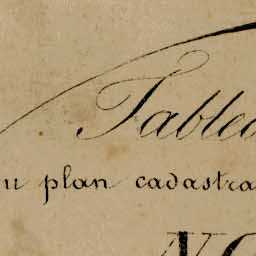 Tablea
u plan cadastra
NO